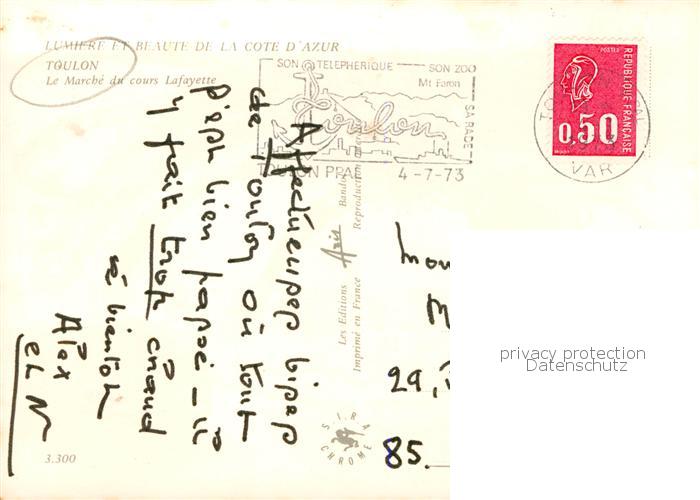 LUMIERE ET BEAUTÉ DE LA COTE D'AZUR
TOULON
Le Marché du cours Lafayette
SON TELEPHERIQUE SON ZOO
Mt Faron
SA RADE
Toulon
TOULON PPAL 4-7-73
TOULON
VAR
POSTES
REPUBLIQUE FRANÇAISE
0,50
Affectueuses bises
de Toulon où tout
s'est bien passé - il
y fait trop chaud
à bientôt
Alex
et M
Les Editions Aris Bandol
Imprimé en France Reproduction
SIRA
CHROME
29,
85.
3.300
privacy protection
Datenschutz